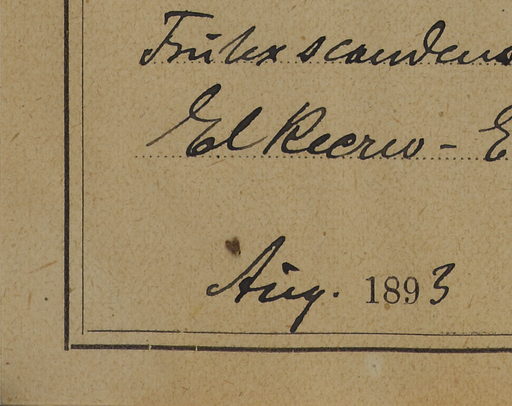 Frutex scandens
El Recreo - E
Aug. 1893